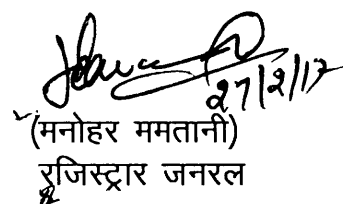 27/2/17
(मनोहर ममतानी)
रजिस्ट्रार जनरल